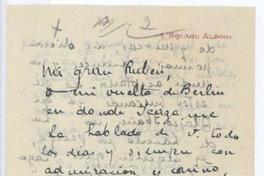 1, SQUARE ALBONI
Mi gran Rubén,
a mi vuelta de Berlin
en donde Icaza me
ha hablado de V. todo
los dias y siempre con
admiracion y cariño,